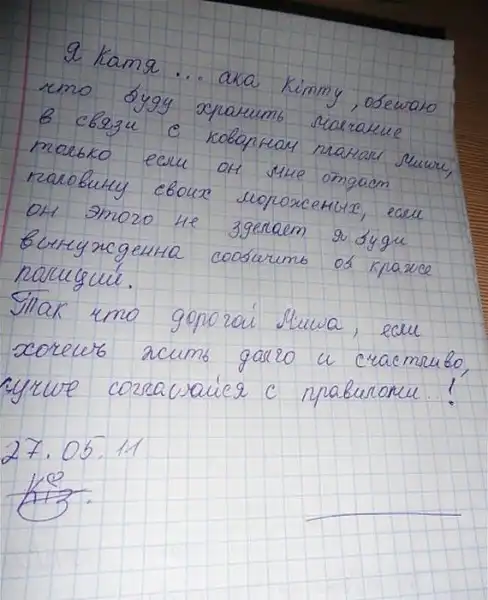 Я Катя ... ака Кітту, обещаю
что буду хранить молчание
в связи с коварном планом Миши,
только если он мне отдаст
половину своих мороженых, если
он этого не зделает я буду
вынужденна сообичить об краже
полиции.
Так что дорогой Миша, если
хочешь жить долго и счастливо,
лучше соглашайся с правилами..!
27.05.11